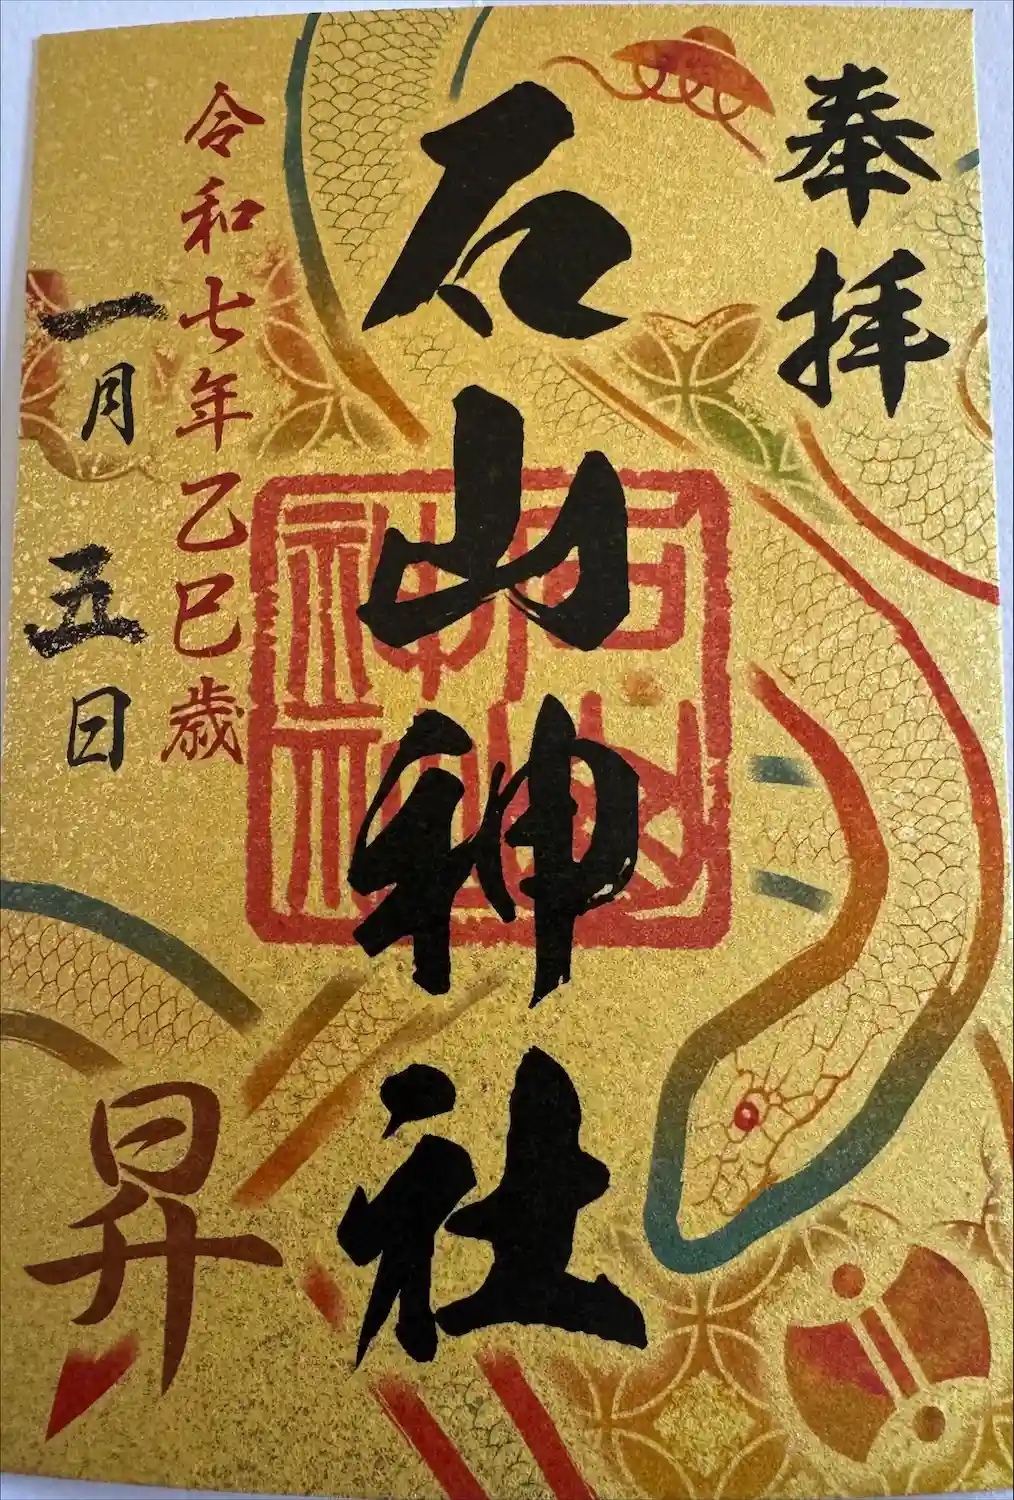 奉拝
石山神社
令和七年乙巳歳
一月五日
昇